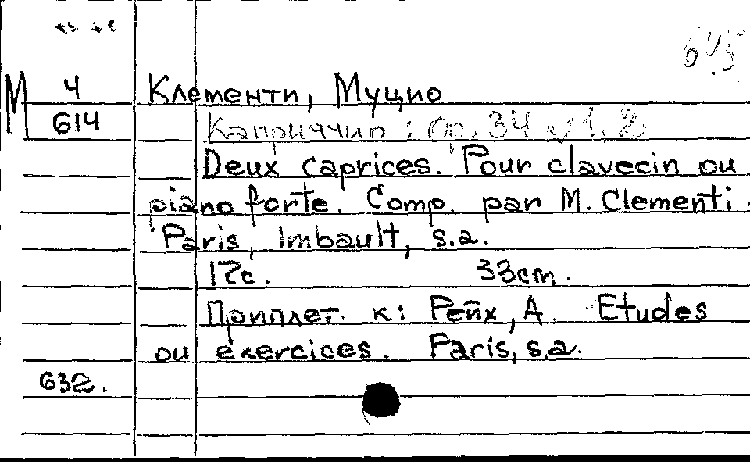 645
М 4 Клементи, Муцио
614 Каприччио: ор. 34 №1, 2
Deux caprices. Pour clavecin ou
piano forte. Comp. par M. Clementi.
Paris, Imbault, s.a.
17с. 33cm.
Приплет. к: Рейх, А. Etudes
ou exercices. Paris, s.a.
632.